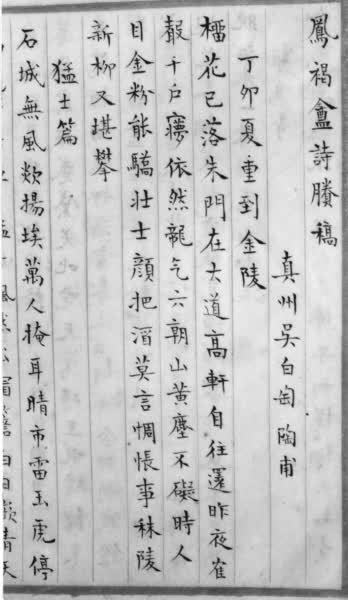 鳳褐盦詩賸稿
真州吳白匋陶甫
丁卯夏重到金陵
橊花已落朱門在大道高軒自往還昨夜雀
鷇千戶夢依然龍气六朝山黃塵不礙時人
目金粉能驕壯士顏把酒莫言惆悵事秣陵
新柳又堪攀
猛士篇
石城無風欻揚埃萬人掩耳晴市雷玉虎停